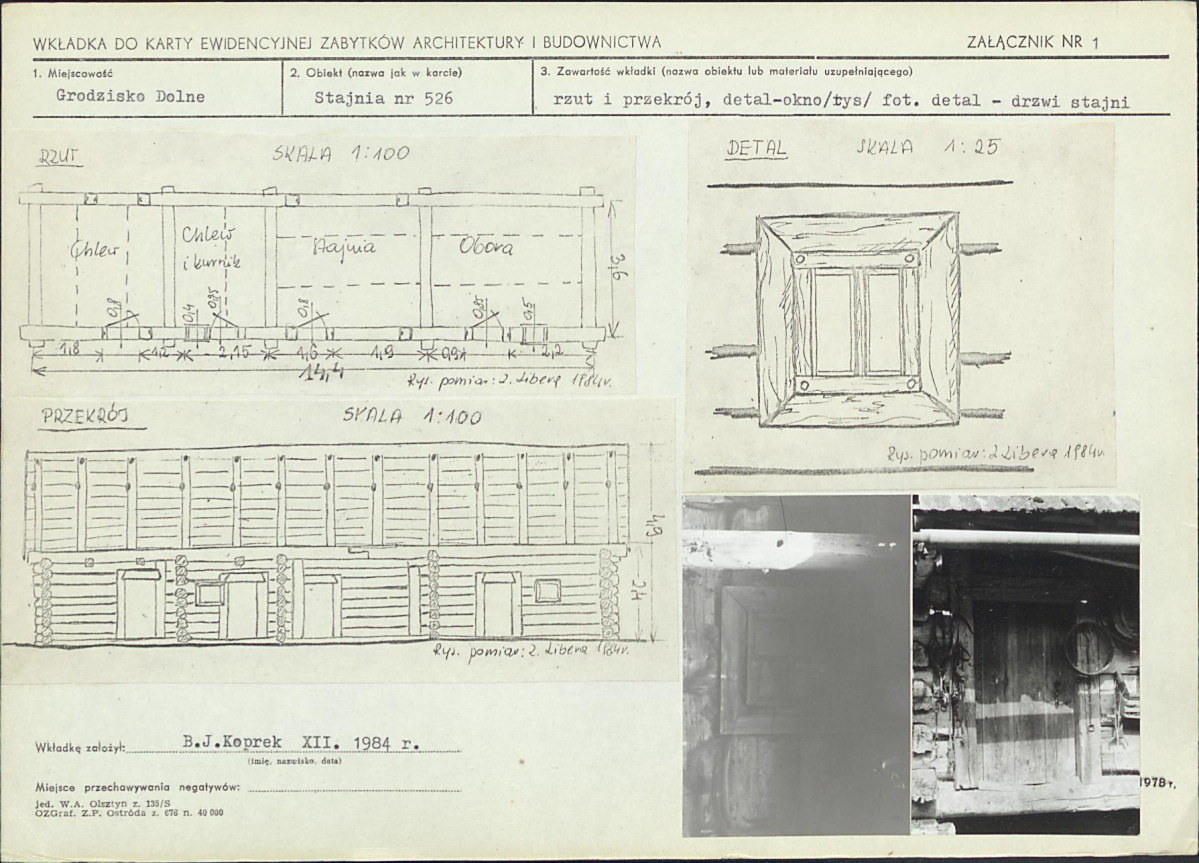 WKŁADKA DO KARTY EWIDENCYJNEJ ZABYTKÓW ARCHITEKTURY I BUDOWNICTWA
ZAŁĄCZNIK NR 1
1. Miejscowość
Grodzisko Dolne
2. Obiekt (nazwa jak w karcie)
Stajnia nr 526
3. Zawartość wkładki (nazwa obiektu lub materiału uzupełniającego)
rzut i przekrój, detal-okno/rys/ fot. detal - drzwi stajni
RZUT
SKALA 1:100
Chlew
Chlew
i kurnik
Stajnia
Obora
3,6
0,8
0,4
0,95
0,8
0,85
0,5
1,8
1,2
2,15
1,6
1,9
0,9
2,2
14,4
Rys. pomiar: Z. Libera 1984r.
PRZEKRÓJ
SKALA 1:100
4,9
2,4
Rys. pomiar: Z. Libera 1984r.
DETAL
SKALA 1:25
Rys. pomiar: Z. Libera 1984r.
Wkładkę założył: B.J.Koprek XII. 1984 r.
(imię, nazwisko, data)
Miejsce przechowywania negatywów:
jed. W.A. Olsztyn z. 135/S
OZGraf. Z.P. Ostróda z. 676 n. 40 000
1978 r.